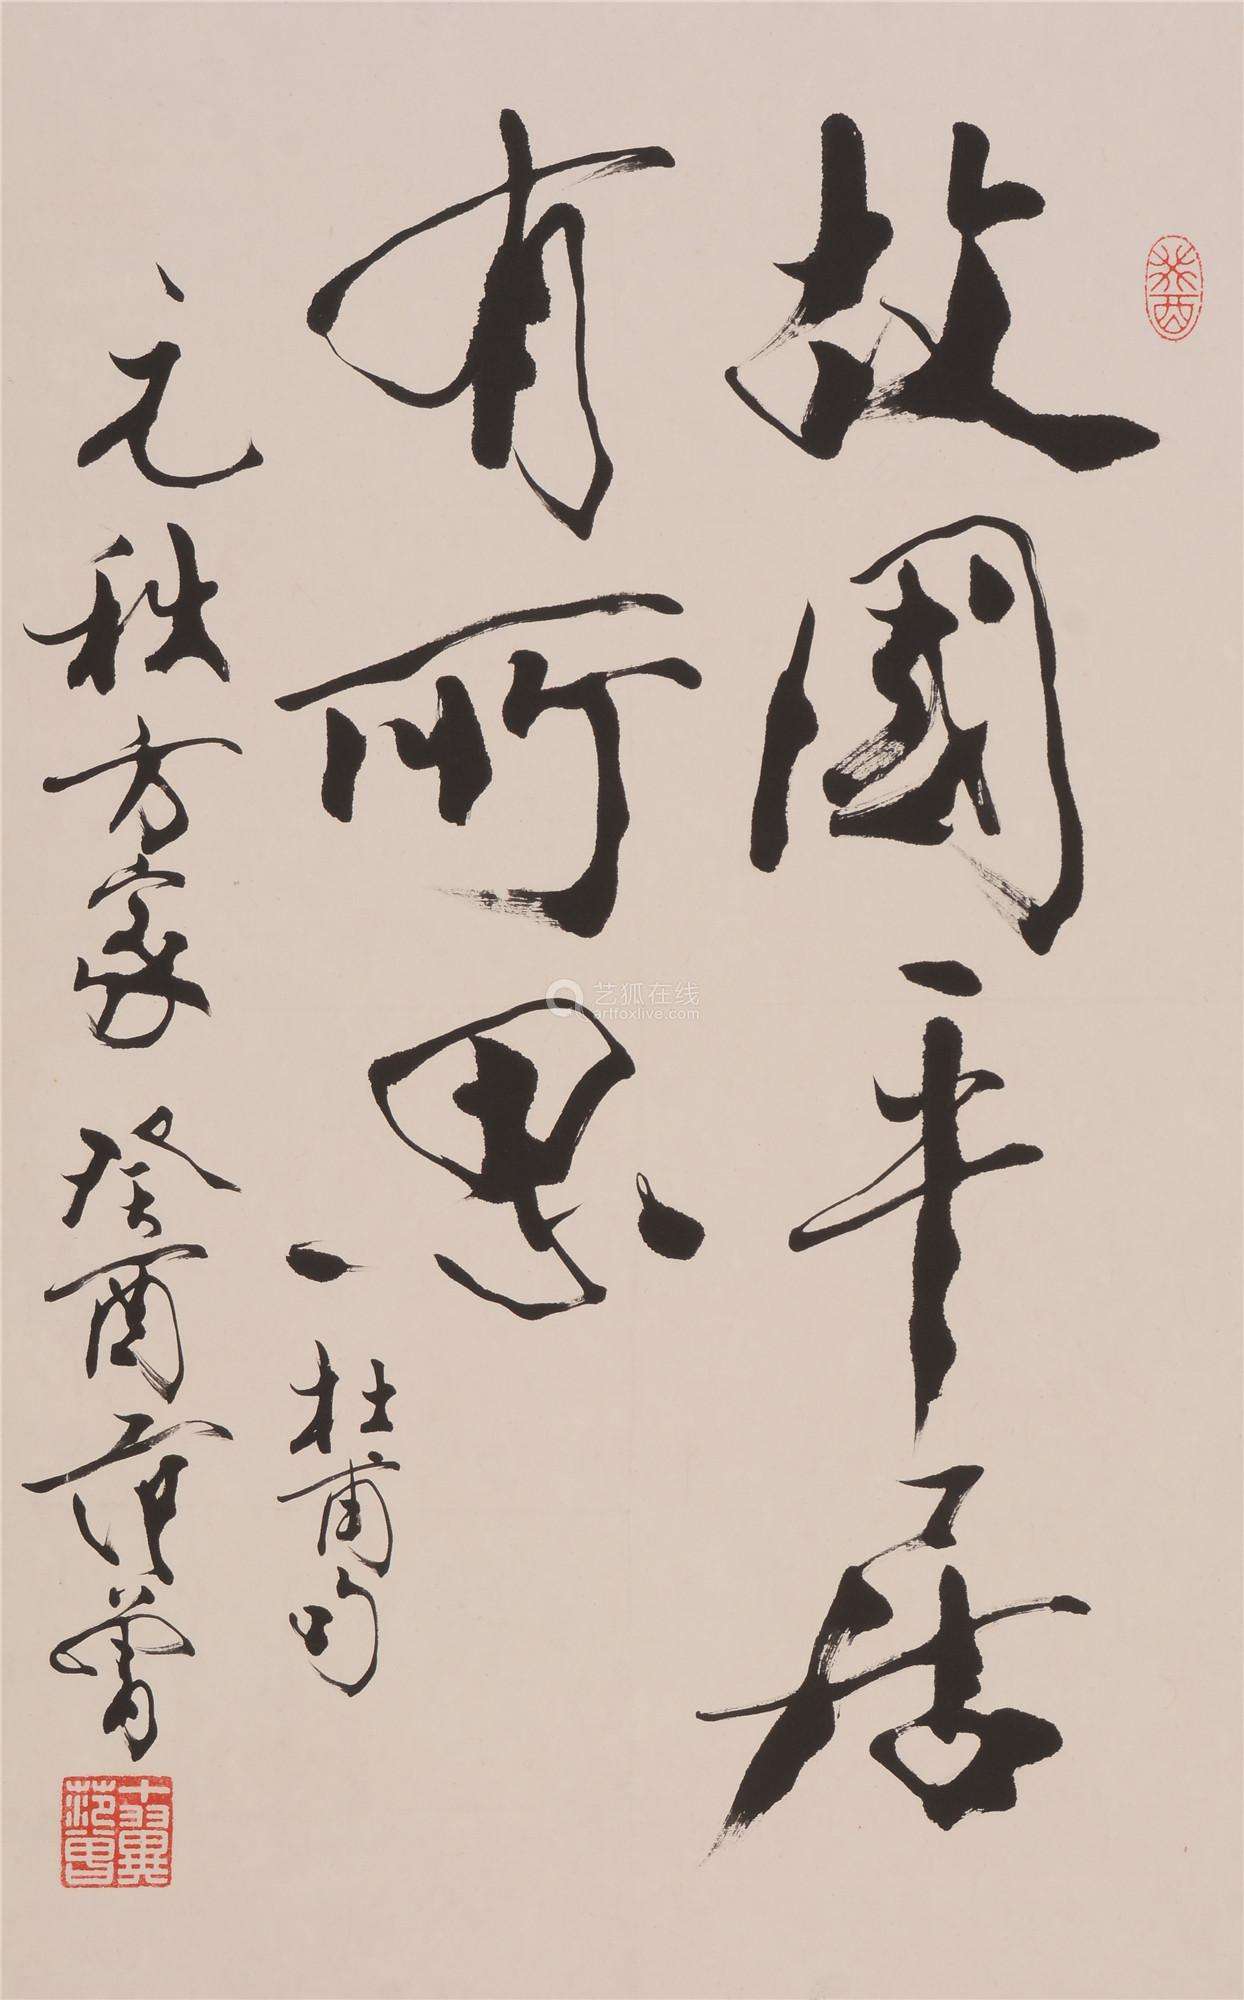 故國平居
有所思
杜甫句
元秩方家 癸酉 范曾
癸酉
十翼范曾
艺狐在线
artfoxlive.com